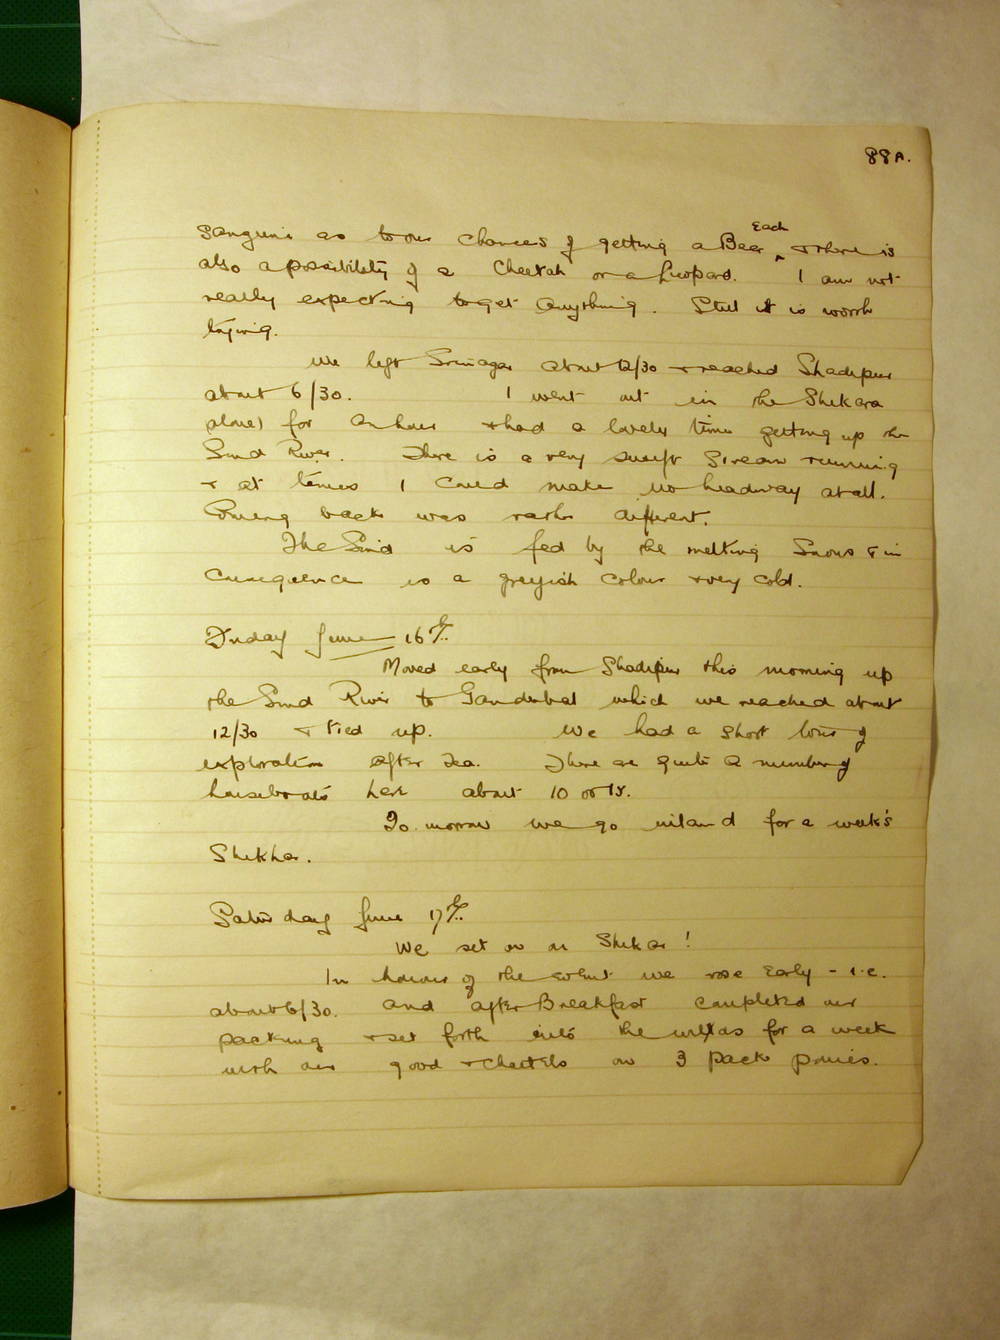 88A.
Sanguine as to our chances of getting a Bear Each & there is
also a possibility of a Cheetah or a Leopard. I am not
really expecting to get anything. Still it is worth
trying.
We left Srinagar about 12/30 & reached Shadipur
about 6/30. I went out in the Shikara
alone) for an hour & had a lovely time getting up the
Sind River. There is a very swift stream running
& at times I could make no headway at all.
Coming back was rather different.
The Sind is fed by the melting snows & in
consequence is a greyish colour & very cold.
Friday June 16th.
Moved early from Shadipur this morning up
the Sind River to Ganderbal which we reached about
12/30 & tied up. We had a short tour of
exploration after tea. There are quite a number of
houseboats here about 10 or 15.
To. morrow we go inland for a week's
Shikhar.
Saturday June 17th.
We set on our Shikar!
In honour of the event we rose early - i.e.
about 6/30. and after Breakfast completed our
packing & set forth into the wilds for a week
with our good & chattels on 3 pack ponies.